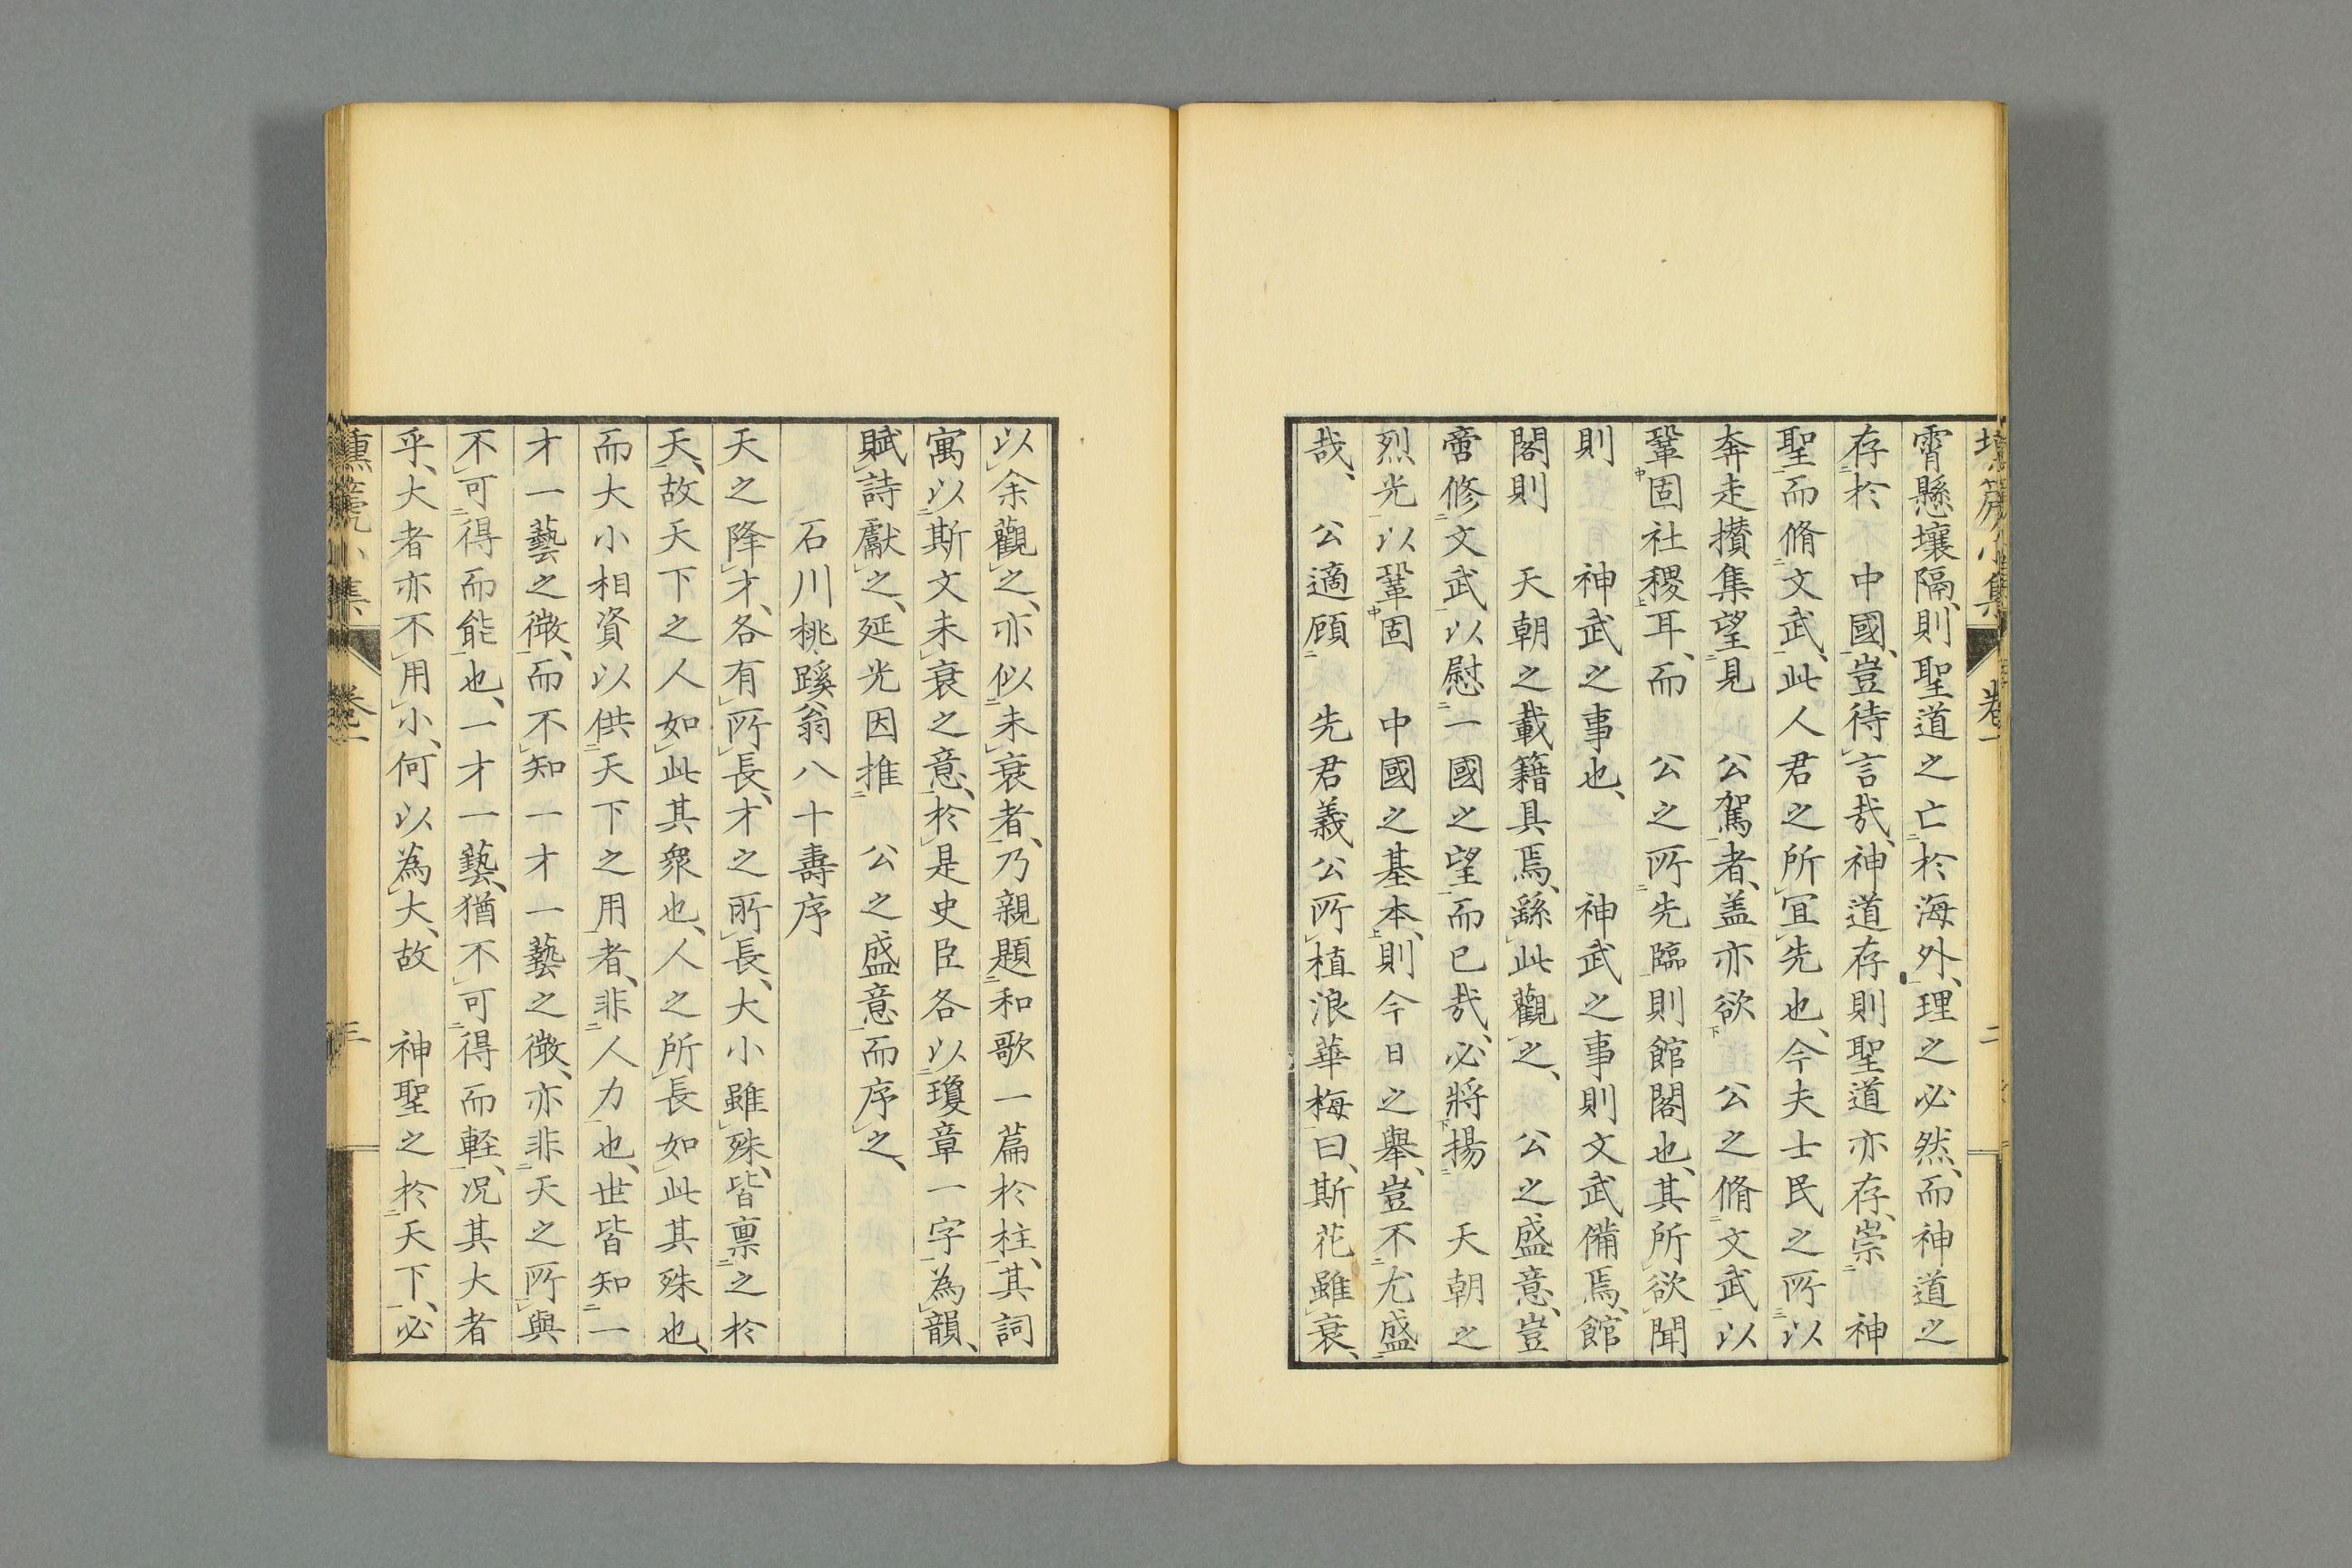 霄懸壤隔、則聖道之亡於海外、理之必然、而神道之
存於　中國、豈待言哉、神道存則聖道亦存、崇　神
聖而脩文武、此人君之所宜先也、今夫士民之所以
奔走攅集望見　公駕者、盖亦欲　公之脩文武以
鞏固社稷耳、而　公之所先臨則館閣也、其所欲聞
則　神武之事也、　神武之事則文武備焉、館
閣則　天朝之載籍具焉、繇此觀之、　公之盛意、豈
啻修文武以慰一國之望而已哉、必將揚　天朝之
烈光以鞏固　中國之基本、則今日之舉、豈不尤盛
哉、　公適顧　先君義公所植浪華梅曰、斯花雖衰、
以余觀之、亦似未衰者、乃親題和歌一篇於柱、其詞
寓以斯文未衰之意、於是史臣各以瓊章一字為韻、
賦詩獻之、延光因推　公之盛意而序之、
石川桃蹊翁八十壽序
天之降才、各有所長、才之所長、大小雖殊、皆稟之於
天、故天下之人如此其衆也、人之所長如此其殊也、
而大小相資以供天下之用者、非人力也、世皆知一
才一藝之微、而不知一才一藝之微、亦非天之所與
不可得而能也、一才一藝、猶不可得而軽、况其大者
乎、大者亦不用小、何以為大、故　神聖之於天下、必
小集　卷一　二
小集　卷一　三